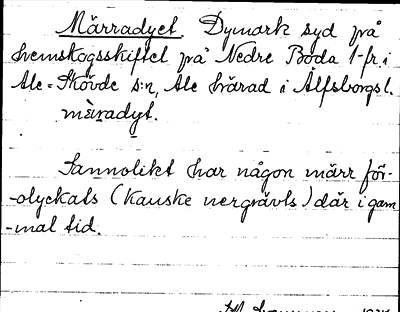 Märradyet. Dymark syd på
hemskogsskiftet på Nedre Boda 1-fr. i
Ale-Skövde s:n, Ale härad i Älfsborgs l.
märadyt.
Sannolikt har någon märr för-
-olyckats (kanske nergrävts) där i gam
-mal tid.